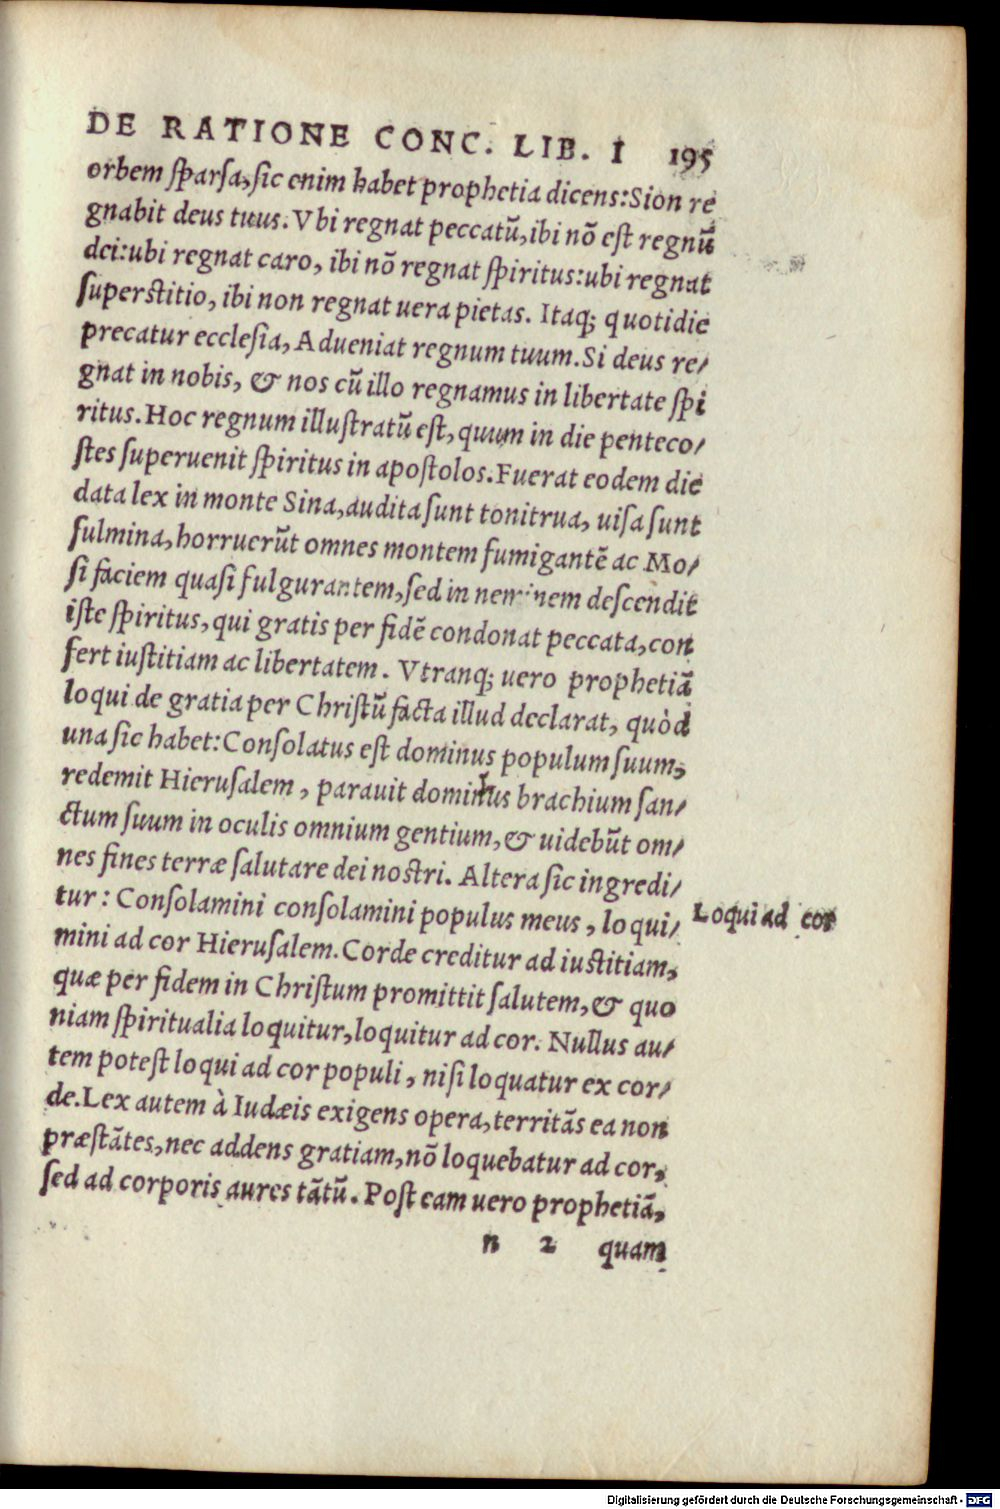 DE RATIONE CONC. LIB. I 195
orbem sparsa, sic enim habet prophetia dicens: Sion re
gnabit deus tuus. Vbi regnat peccatũ, ibi nõ est regnũ
dei: ubi regnat caro, ibi nõ regnat spiritus: ubi regnat
superstitio, ibi non regnat uera pietas. Itaq; quotidie
precatur ecclesia, Adueniat regnum tuum. Si deus re/
gnat in nobis, & nos cũ illo regnamus in libertate spi
ritus. Hoc regnum illustratũ est, quum in die penteco/
stes superuenit spiritus in apostolos. Fuerat eodem die
data lex in monte Sina, audita sunt tonitrua, uisa sunt
fulmina, horruerũt omnes montem fumigantẽ ac Mo/
si faciem quasi fulgurantem, sed in neminem descendit
iste spiritus, qui gratis per fidẽ condonat peccata, con
fert iustitiam ac libertatem. Vtranq; uero prophetiã
loqui de gratia per Christũ facta illud declarat, quòd
una sic habet: Consolatus est dominus populum suum,
redemit Hierusalem, parauit dominus brachium san/
ctum suum in oculis omnium gentium, & uidebũt om/
nes fines terræ salutare dei nostri. Altera sic ingredi/
tur: Consolamini consolamini populus meus, loqui/
Loqui ad cor
mini ad cor Hierusalem. Corde creditur ad iustitiam,
quæ per fidem in Christum promittit salutem, & quo
niam spiritualia loquitur, loquitur ad cor. Nullus au/
tem potest loqui ad cor populi, nisi loquatur ex cor/
de. Lex autem à Iudæis exigens opera, territãs ea non
præstãtes, nec addens gratiam, nõ loquebatur ad cor,
sed ad corporis aures tãtũ. Post eam uero prophetiã,
n 2 quam
Digitalisierung gefördert durch die Deutsche Forschungsgemeinschaft - DFG